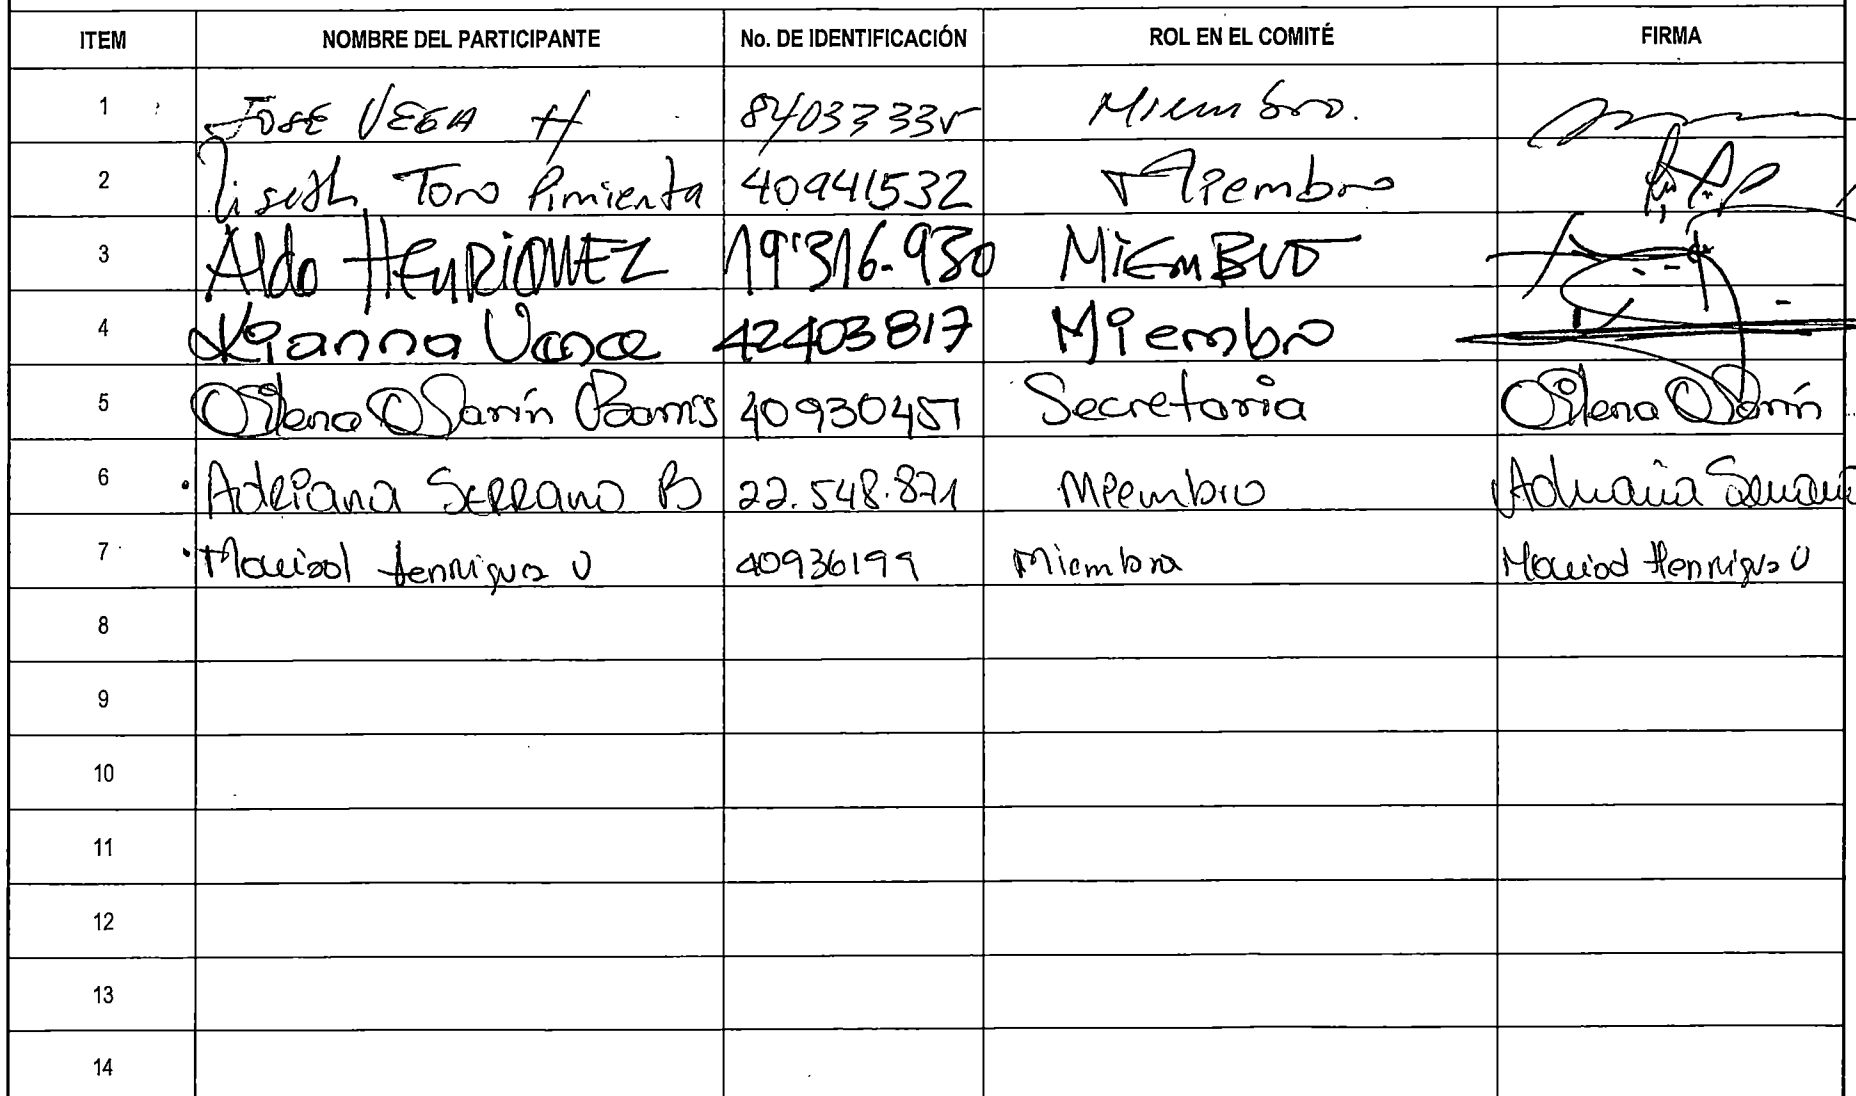 ITEM NOMBRE DEL PARTICIPANTE No. DE IDENTIFICACIÓN ROL EN EL COMITÉ FIRMA
1 JOSE VEGA H Miembro.
2 Liseth Toro Pimienta 40941532 Miembro
3 Aldo HENRIQUEZ 19'316.930 MiEmBRO
4 Vance 42403817 Miembro
5 Barros 40930457 Secretaria
6 Adriana SERRANO B 22.548.871 Miembro Adriana Serrano
7 Marisol Henriquez U 40936199 Miembro Marisol Henriquez U
8
9
10
11
12
13
14